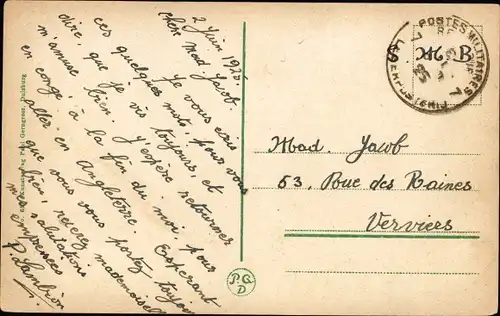 2 Juin 1925
Chère Mad. Jacob,
Je vous écris
ces quelques mots, pour vous
dire, que je vis toujours, et
m'amuse bien. J'espère retourner
en congé à la fin du moi, pour
aller en Angleterre. Espérant
que vous vous portez toujours
bien, recevez mademoiselle
mes salutations
empressées
P. Lambion
Mad. Jacob
53, Rue des Raines
Verviers
POSTES MILITAIRES
M B
P.G.
D
Gerngross, Duisburg